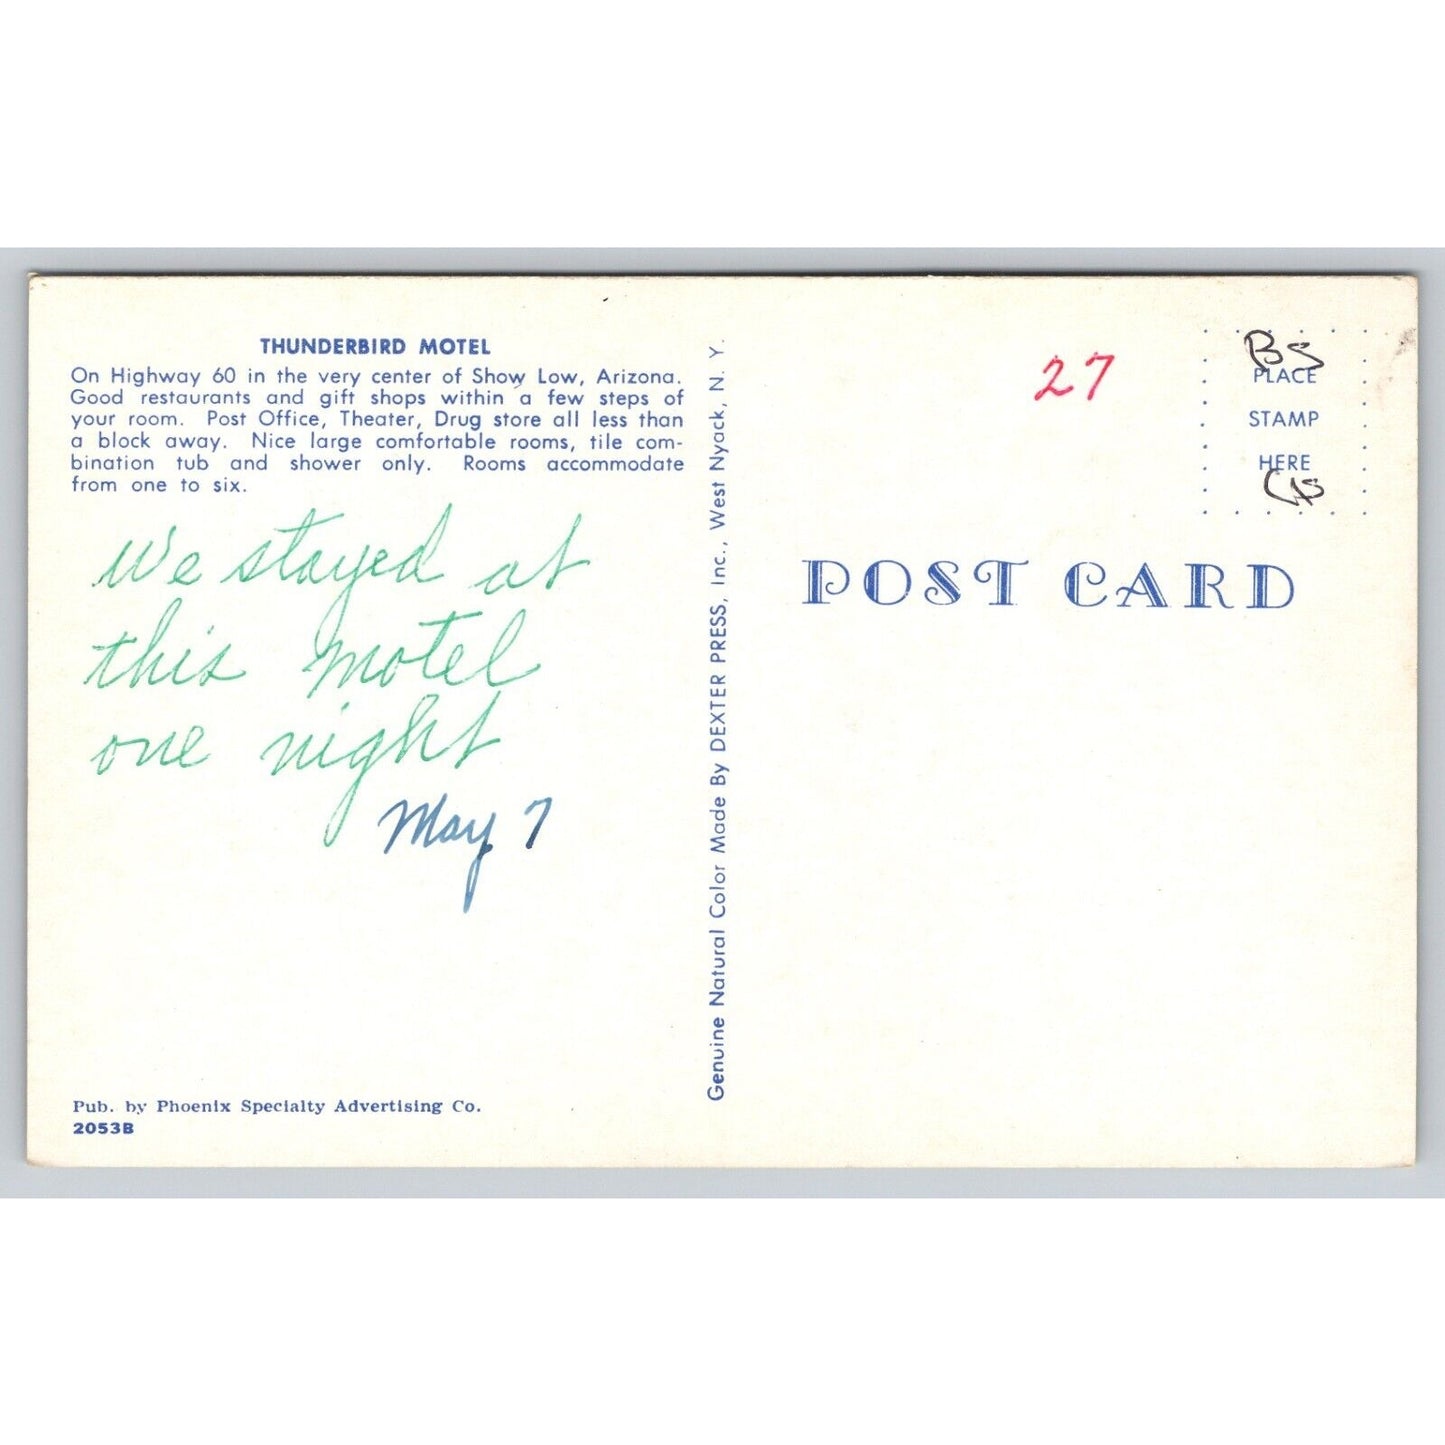 THUNDERBIRD MOTEL
On Highway 60 in the very center of Show Low, Arizona.
Good restaurants and gift shops within a few steps of
your room. Post Office, Theater, Drug store all less than
a block away. Nice large comfortable rooms, tile com-
bination tub and shower only. Rooms accommodate
from one to six.
We stayed at
this motel
one night
May 7
Pub. by Phoenix Specialty Advertising Co.
2053B
Genuine Natural Color Made By DEXTER PRESS, Inc., West Nyack, N. Y.
27
BS
PLACE
STAMP
HERE
POST CARD